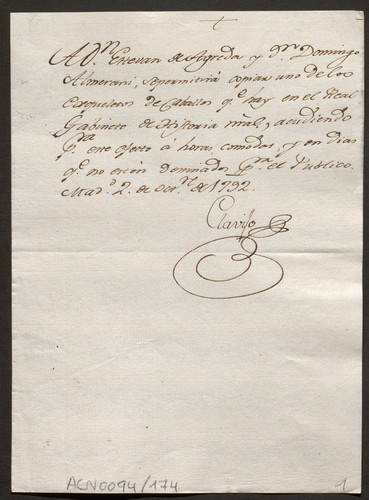 A Dn. Estevan de Agreda y Dn. Domingo
Almerani, se permitirá copiar uno de los
Esqueletos de Caballos qe. hay en el Real
Gabinete de Historia nral, acudiendo
pa. este efecto á horas comodas, y en dias
qe. no estén destinados pa. el Publico.
Madd. 2 de de 1792.
Clavijo
ACN0094/174
1